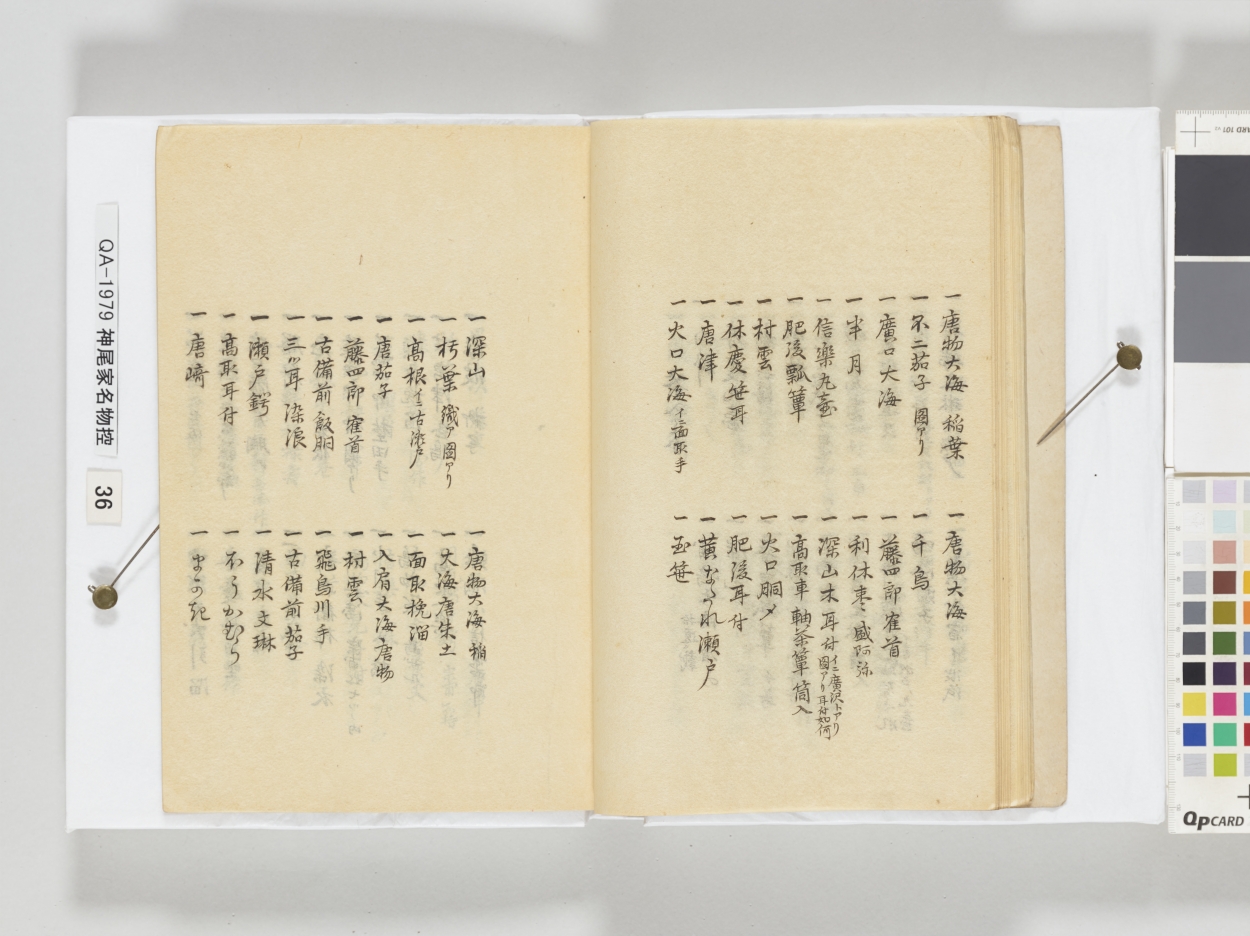 一唐物大海 稲葉
一不二茄子 圖アリ
一廣口大海
一半月
一信樂丸壷
一肥後瓢箪
一村雲
一休慶笹耳
一唐津
一火口大海 イニ面取手
一唐物大海
一千鳥
一藤四郎寉首
一利休棗 盛阿弥
一深山木耳付 イニ廣沢トアリ 圖アリ耳付如何
一高取車軸茶箪筒入
一火口胴〆
一肥後耳付
一黄なたれ瀬戸
一玉笹
一深山
一朽葉 織ア圖アリ
一高根 イニ古瀬戸
一唐茄子
一藤四郎寉首
一古備前飯胴
一三ツ耳染浪
一瀬戸鍔
一高取耳付
一唐崎
一唐物大海 稲
一大海唐朱土
一面取挽溜
一入肩大海唐物
一村雲
一飛鳥川手
一古備前茄子
一清水文琳
一不うかむら
QA-1979 神尾家名物控
36
QpCARD